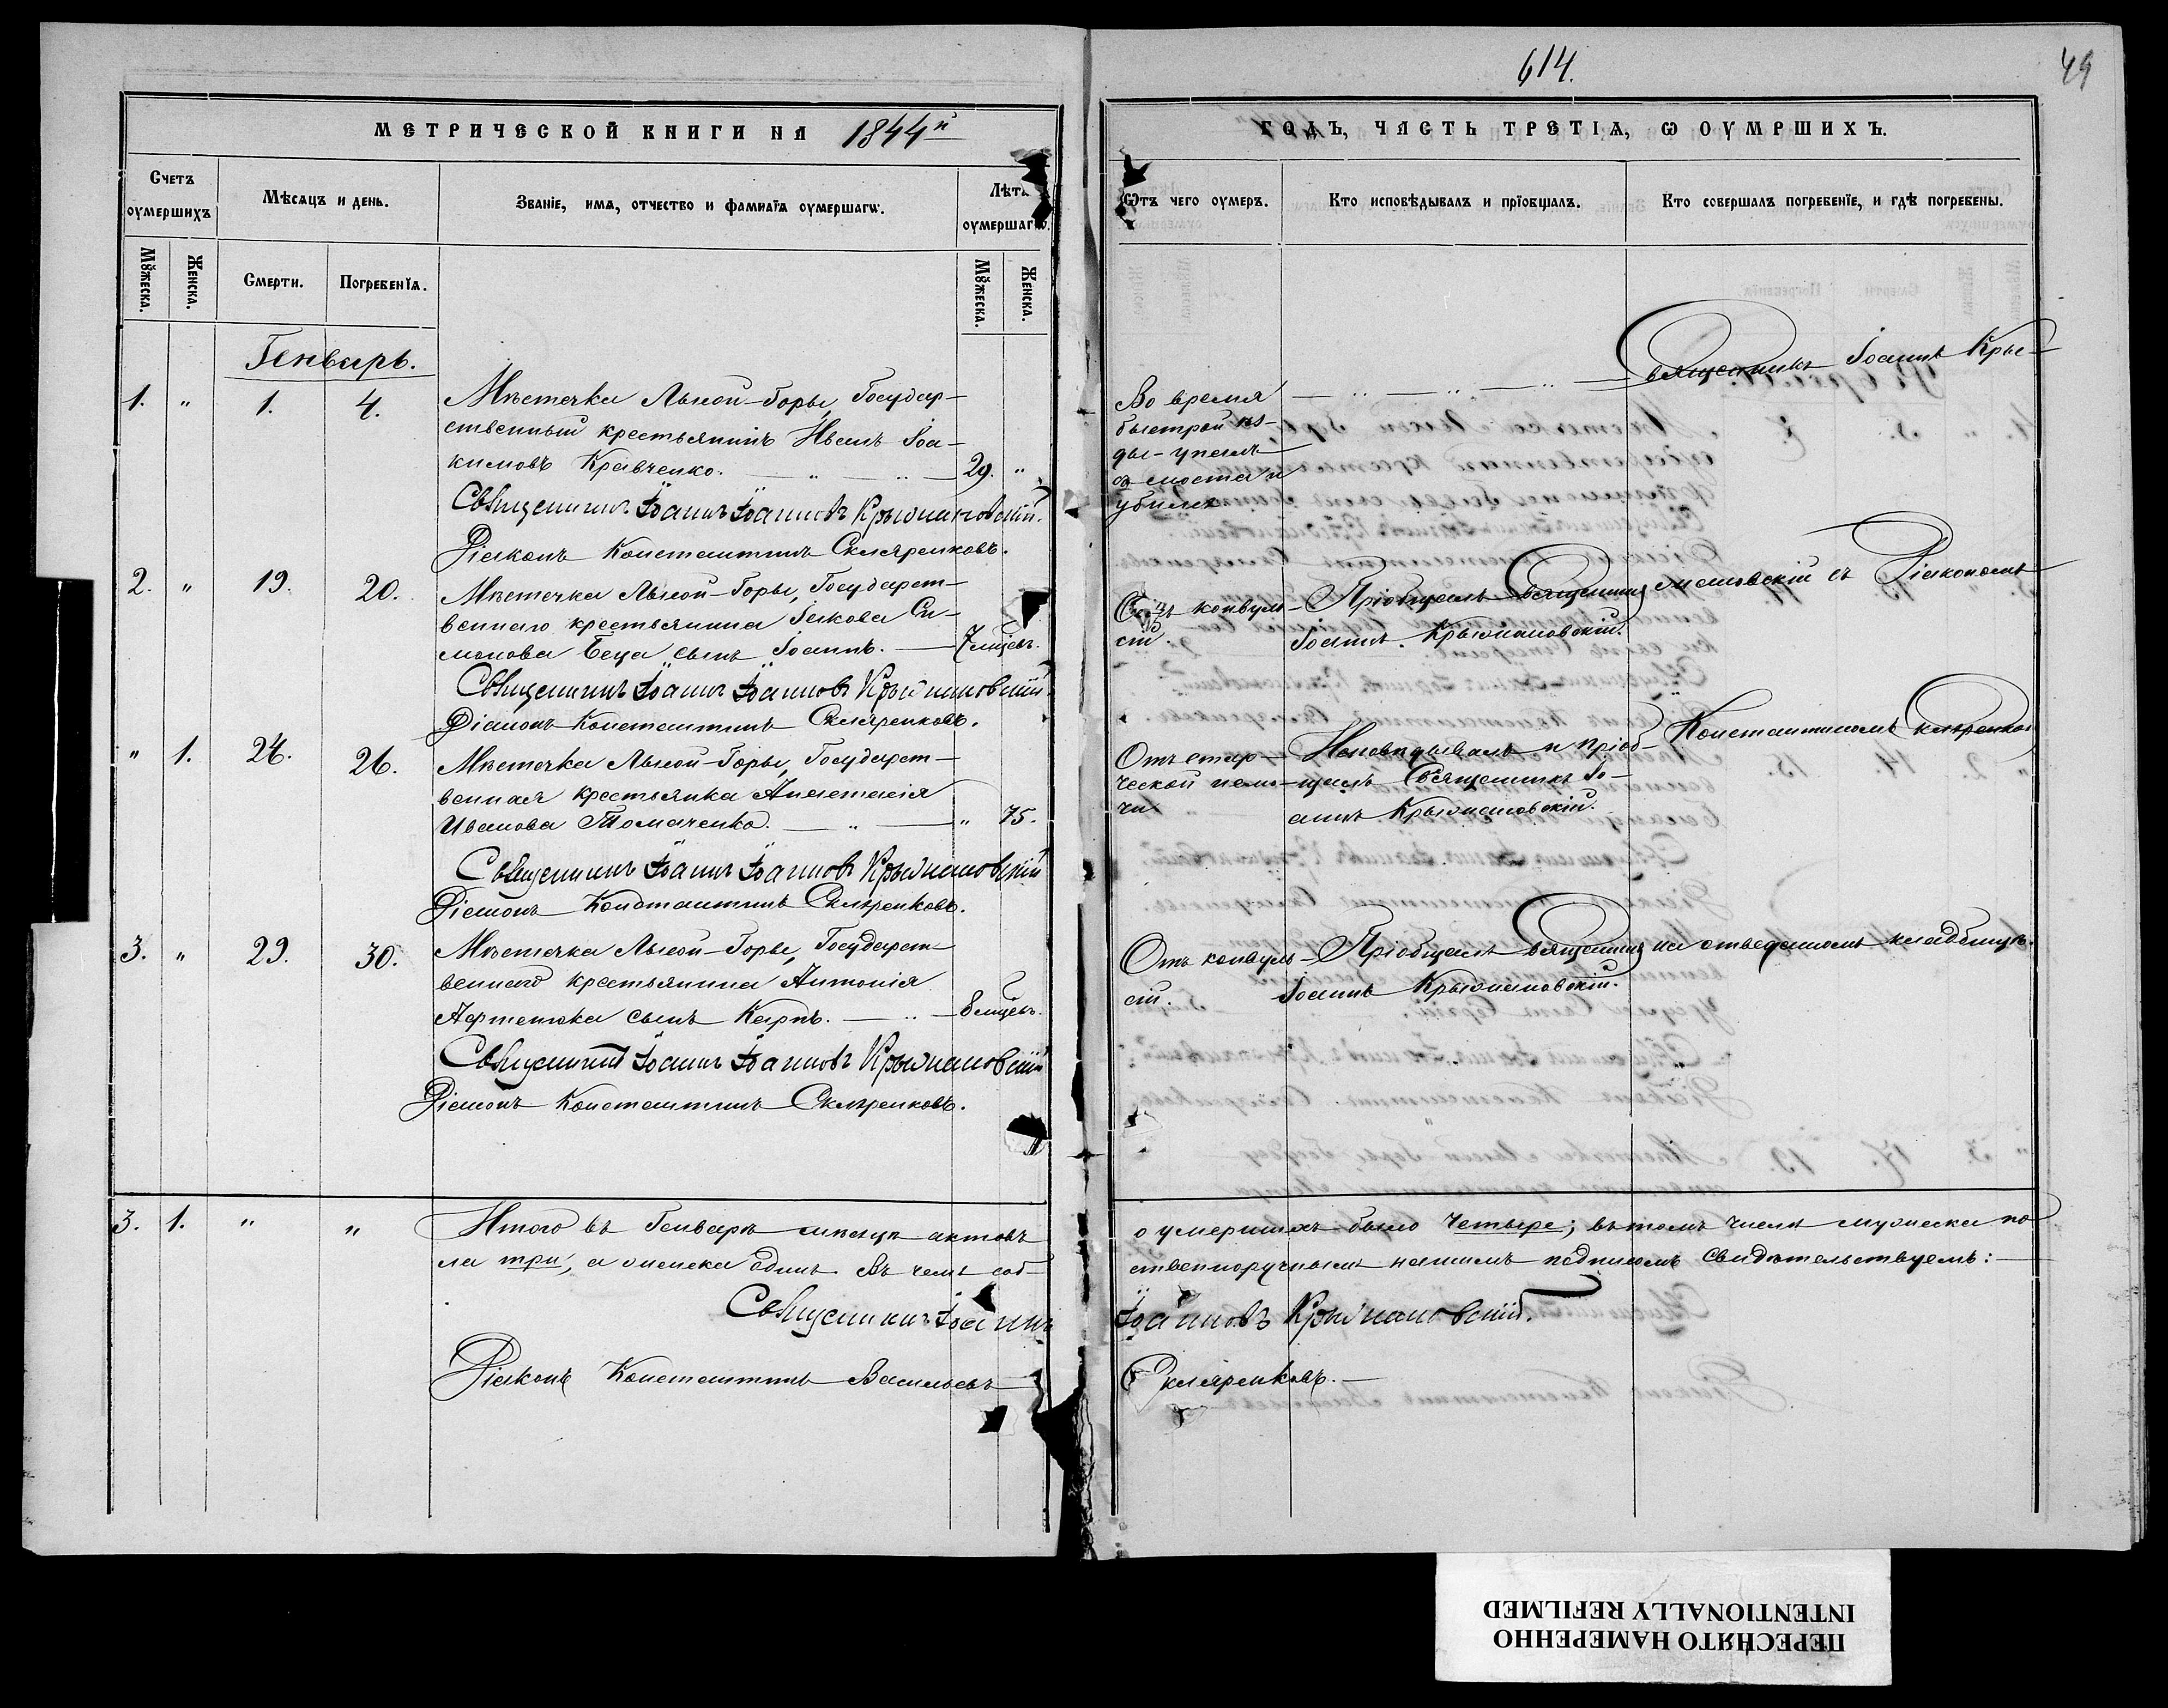 614.
49
МЕТРИЧЕСКОЙ КНИГИ НА 1844й
ГОДЪ, ЧАСТЬ ТРЕТІѦ, Ѡ ОУМРШИХЪ.
Счетъ оумершихъ
Мѣсяцъ и день.
Званіе, имѧ, отчество и фамиліѧ оумершагѡ.
Лѣта оумершагѡ.
Ѿтъ чего оумеръ.
Кто исповѣдывалъ и пріобщалъ.
Кто совершалъ погребеніе, и гдѣ погребены.
Мꙋжеска.
Женска.
Смерти.
Погребеніѧ.
Мꙋжеска.
Женска.
Генварь.
1. " 1. 4.
Мѣстечка Лысой-Горы, Государ-
ственный крестьянинъ Иванъ Іоа-
кимовъ Кравченко. 29. "
Священникъ Іоаннъ Іоанновъ Крыжановскій.
Діаконъ Константинъ Скляренковъ.
Во время
быстрой ѣз-
ды-упалъ
съ моста и
убился
Священникъ Іоаннъ Кры-
2. " 19. 20.
Мѣстечка Лысой-Горы, Государст-
веннаго крестьянина Іакова Си-
монова Беца сынъ Іоаннъ. 7 мѣсяц.
Священникъ Іоаннъ Іоанновъ Крыжановскій
Діаконъ Константинъ Скляренковъ.
Отъ конвуль-
сій.
Пріобщалъ Священникъ
Іоаннъ Крыжановскій.
жановскій съ Діакономъ
" 1. 24. 26.
Мѣстечка Лысой-Горы, Государст-
венная крестьянка Анастасія
Иванова Томаченко. " 75.
Священникъ Іоаннъ Іоанновъ Крыжановскій
Діаконъ Константинъ Скляренковъ.
Отъ стар-
ческой немо-
чи
Исповѣдывалъ и пріоб-
щалъ Священникъ Іо-
аннъ Крыжановскій.
Константиномъ
3. " 29. 30.
Мѣстечка Лысой-Горы, Государст-
веннаго крестьянина Антонія
сынъ Карпъ.
Священникъ Іоаннъ Іоанновъ Крыжановскій
Діаконъ Константинъ Скляренковъ.
Отъ конвуль-
сій.
Пріобщалъ Священникъ
Іоаннъ Крыжановскій.
на отведенномъ кладбищѣ.
3. 1. " "
Итого въ Генварѣ мѣсяцѣ актовъ
о умершихъ было четыре; въ томъ числѣ мужеска по-
ла три, а женска одинъ. Въ чемъ соб-
ственноручнымъ нашимъ подписомъ свидѣтельствуемъ:
Священникъ Іоаннъ
Іоанновъ Крыжановскій.
Діаконъ Константинъ Васильевъ
Скляренковъ.
ПЕРЕСНЯТО НАМЕРЕННО
INTENTIONALLY REFILMED